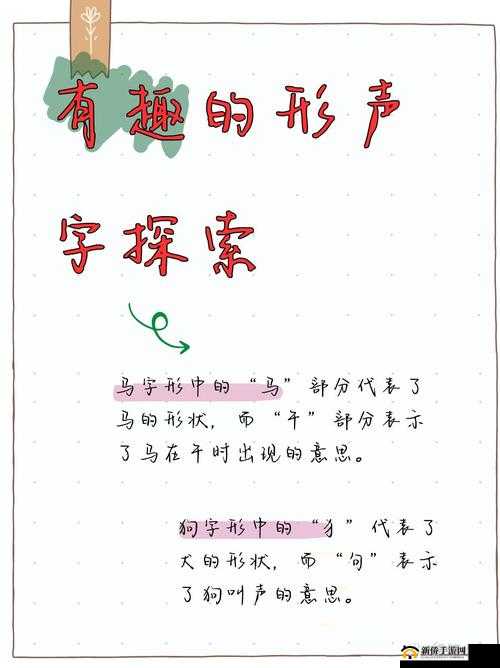 有趣的形声
字探索
马字形中的“马”部分代表了
马的形状，而“干”部分表示
了马在干时出现的意思。
狗字形中的“犭”代表了
犬的形状，而“句”表示
了狗叫声的意思。
新侨手游网